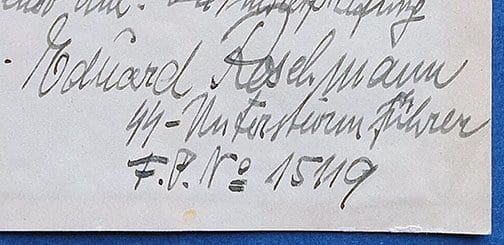 Eduard Roschmann
SS-Untersturmführer
F.P. No 15119